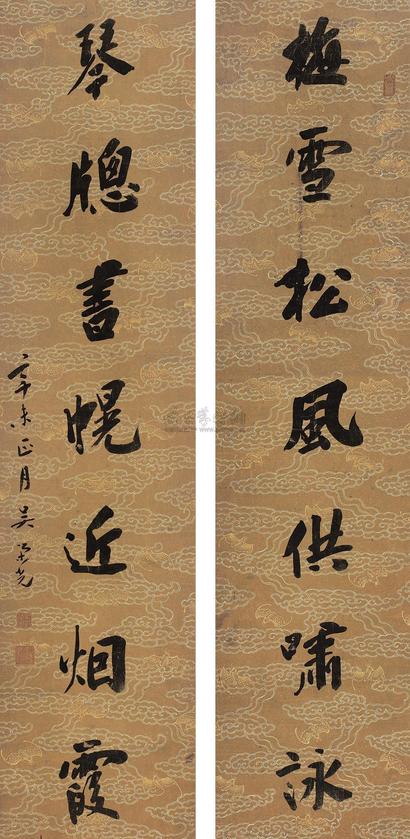 梅雪松風供嘯詠
琴牕書幌近烟霞
辛未正月吴榮光